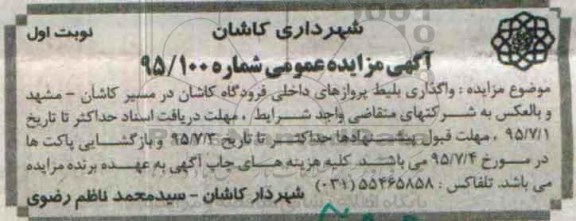 شهرداری کاشان
نوبت اول
آگهی مزایده عمومی شماره ۹۵/۱۰۰
موضوع مزایده : واگذاری بلیط پروازهای داخلی فرودگاه کاشان در مسیر کاشان - مشهد
و بالعکس به شرکتهای متقاضی واجد شرایط ، مهلت دریافت اسناد حداکثر تا تاریخ
۹۵/۷/۱ ، مهلت قبول پیشنهادها حداکثر تا تاریخ ۹۵/۷/۳ و بازگشایی پاکت ها
در مورخ ۹۵/۷/۴ می باشد. کلیه هزینه های چاپ آگهی به عهده برنده مزایده
می باشد. تلفاکس : ۵۵۴۶۵۸۵۸ (۰۳۱) شهردار کاشان - سیدمحمد ناظم رضوی